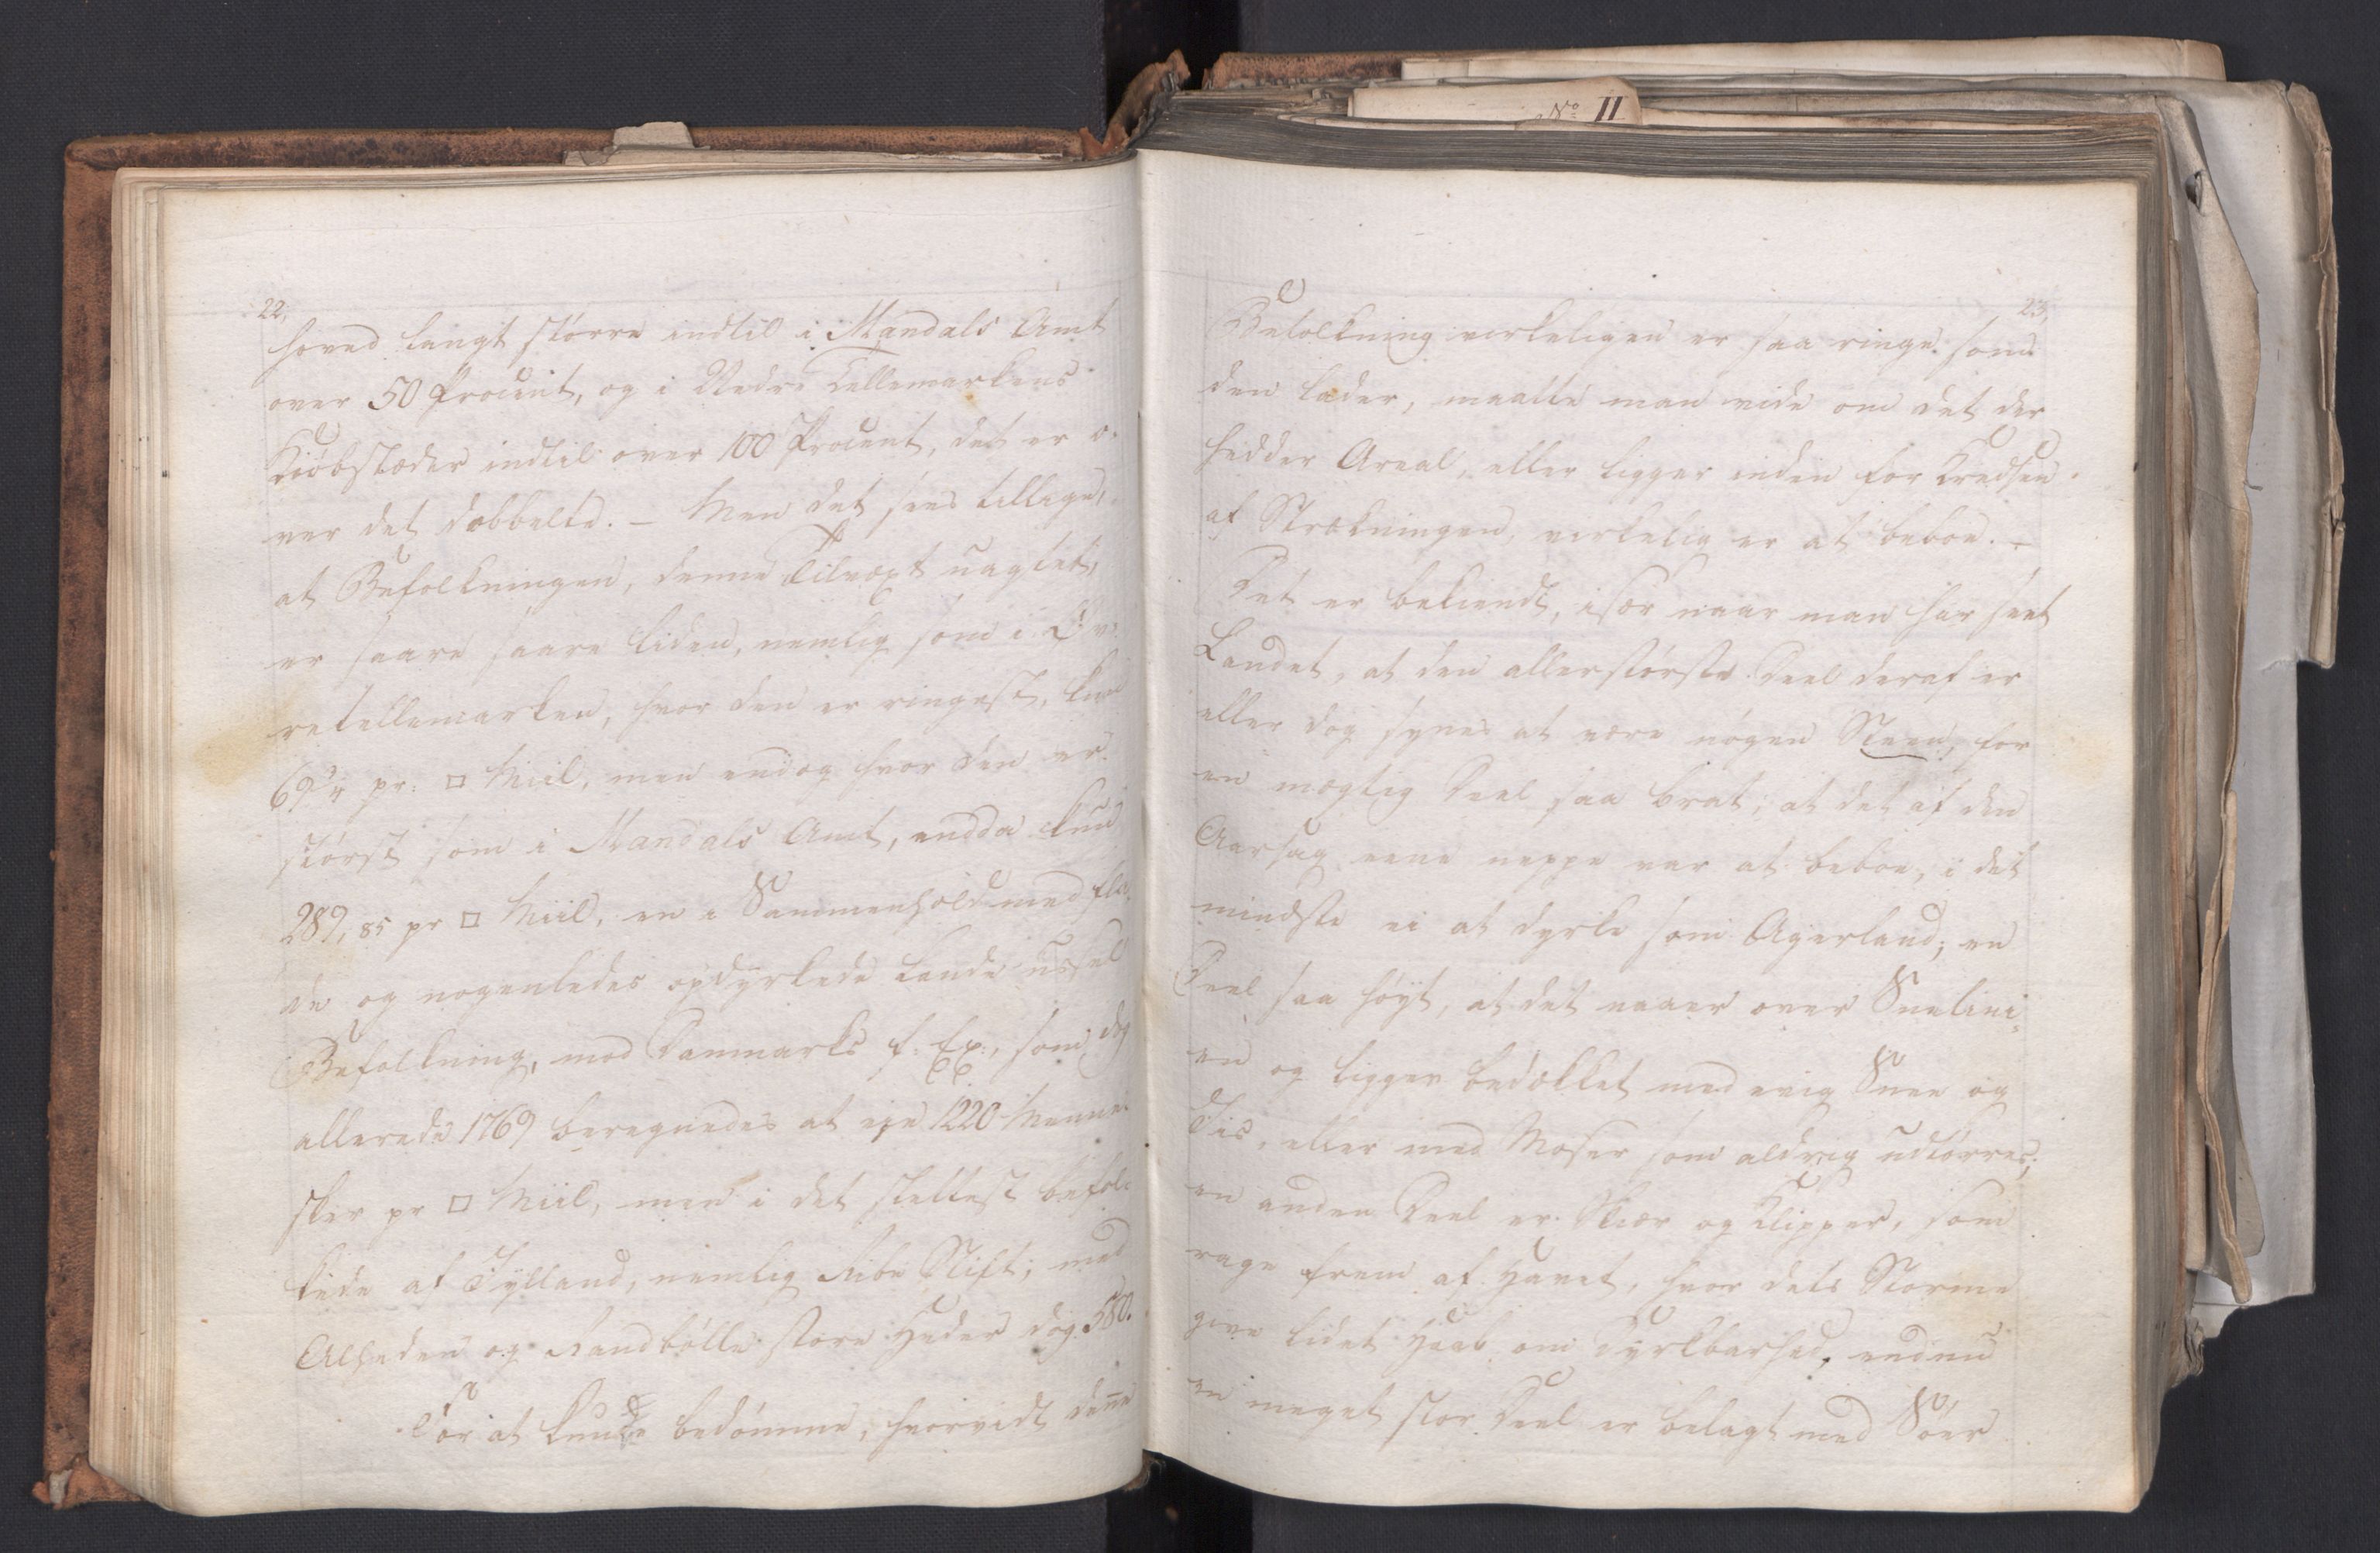 No II
22,
hoved langt større indtil i Mandals Amt
over 50 Procent, og i Nedre Tellemarkens
Kiøbstæder indtil over 100 Procent, det er o-
ver det dobbelte. – Men det sees tillige,
at Befolkningen, denne Tilvæxt uagtet,
er saare saare liden, nemlig som i Øv-
retellemarken, hvor den er ringest, kun
pr: □ Miil, men endog hvor den er
størst som i Mandals Amt, endda kun
289,85 pr □ Miil, en i Sammenhold med fla-
de og nogenledes opdyrkede Lande ussel
Befolkning, mod Danmarks f: Ex:, som dog
allerede 1769 beregnedes at eje 1220 Menne-
sker pr □ Miil, men i det slettest befol-
kede af Jylland, nemlig Ribe Stift, med
Alheden og Randbølle store Heder dog 580.
For at kunde bedømme, hvorvidt denne
23,
Befolkning virkeligen er saa ringe som
den lader, maatte man vide om det der
hedder Areal, eller ligger inden for Kredsen
af Strækningen, virkelig er at beboe. –
Det er bekiendt, især naar man har seet
Landet, at den allerstørste Deel deraf er
eller dog synes at være nøgen Steen, for
en mægtig Deel saa brat, at det af den
Aarsag ene neppe var at beboe, i det
mindste ei at dyrke som Agerland; en
Deel saa høyt, at det naaer over Sneelini-
en og ligger bedækket med evig Snee og
Iis, eller med Moser som aldrig udtørres;
en anden Deel er Skiær og Klipper, som
rage frem af Havet, hvor dets Storme
give lidet Haab om Dyrkbarhed, endnu
en meget stor Deel er belagt med Søer